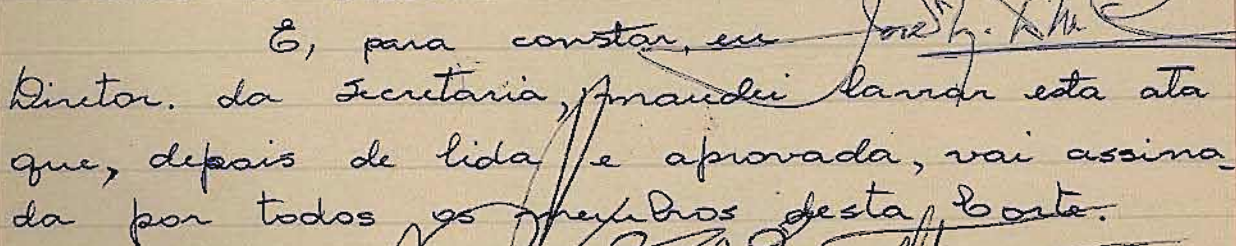 E, para constar, eu
Diretor. da Secretaria, mandei lavrar esta ata
que, depois de lida e aprovada, vai assina_
da por todos os membros desta Corte.